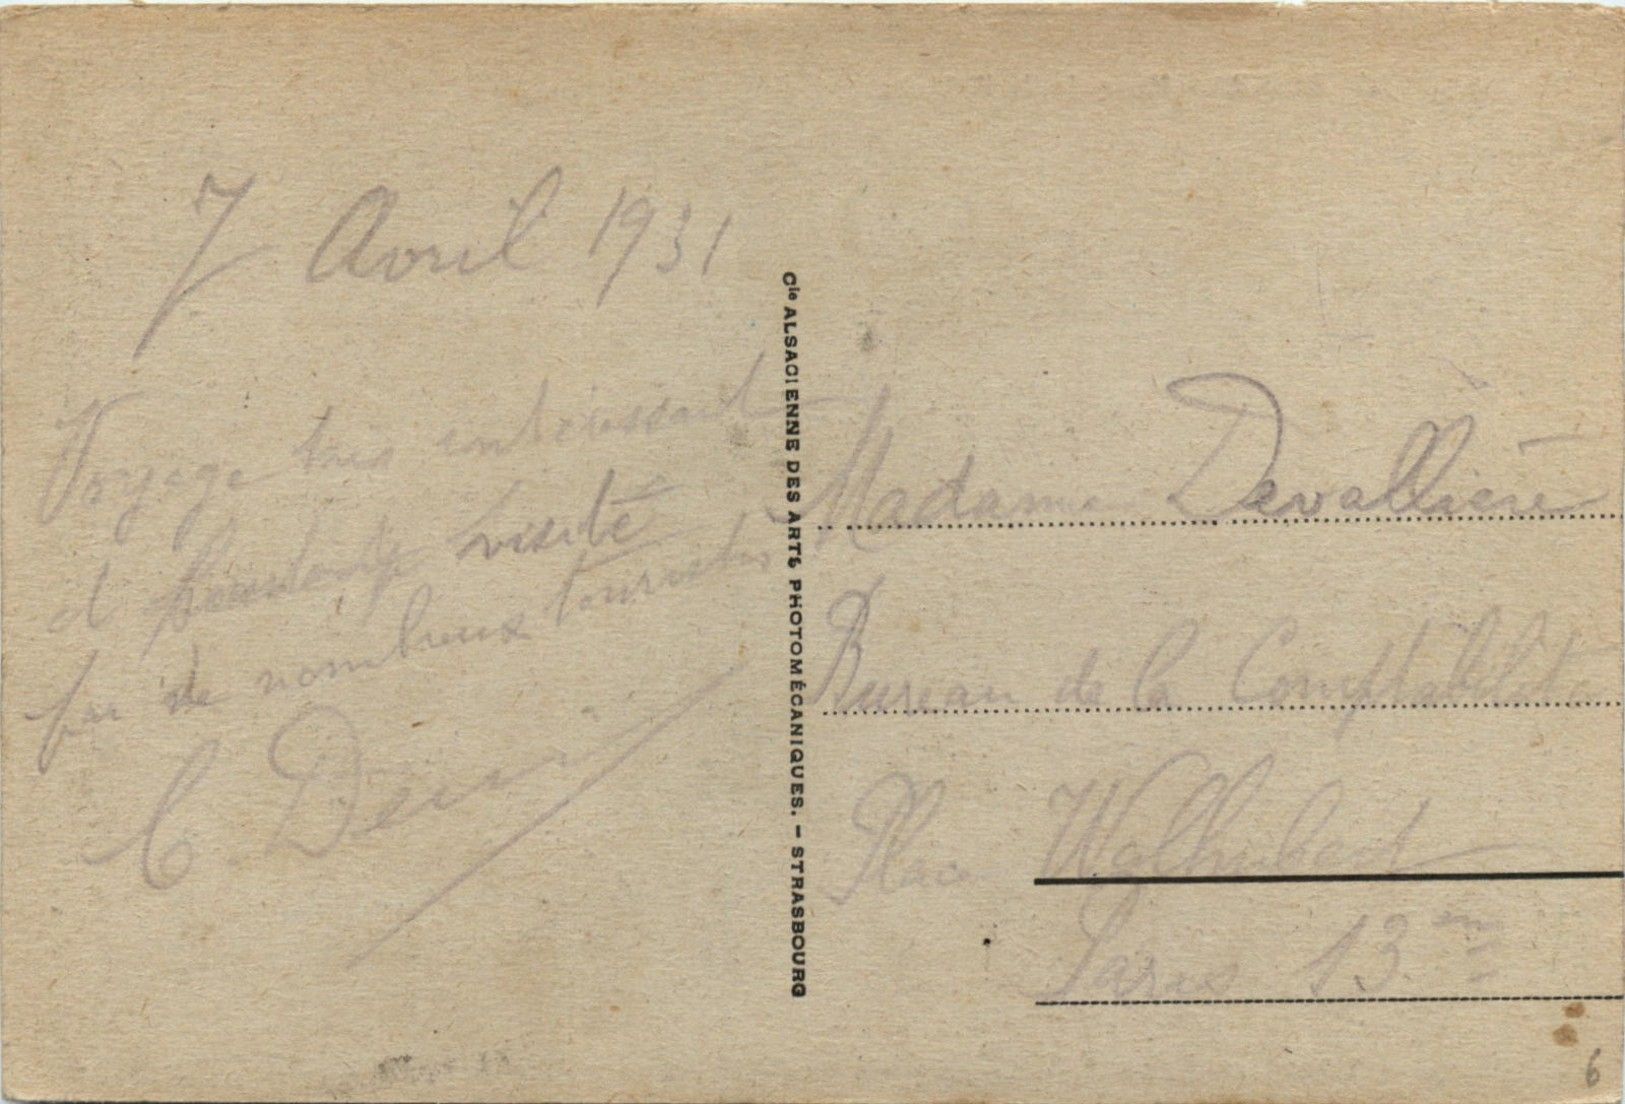 7 Avril 1931
Voyage très intéressant
et visité
par de nombreux touristes
C. 
Cie ALSACIENNE DES ARTS PHOTOMÉCANIQUES. – STRASBOURG
Madame Devallière
Bureau de la Comptabilité
Place Walhubert
Paris 13 em
6